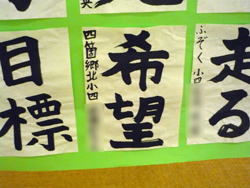 走る
ふぞく小四
希望
四箇郷北小四
目標
央